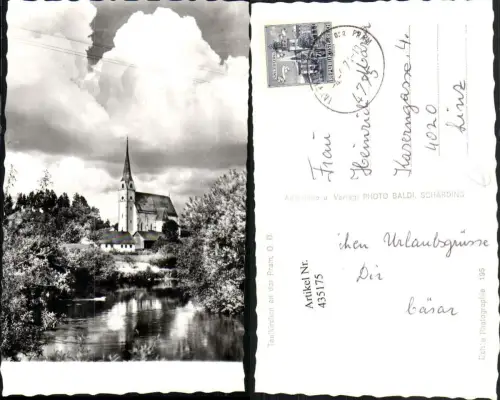 Frau
Kaserngasse 4
4020
Linz
Aufnahme u. Verlag: PHOTO BALDI, SCHÄRDING
Taufkirchen an der Pram, O. Ö.
Artikel Nr.
435175
Urlaubsgrüsse
Dir
Cäsar
Echte Photographie 195